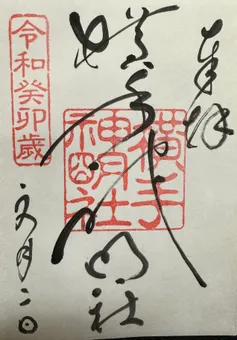 奉拝
横手神明社
横手
神明社
令和癸卯歳
文月二日